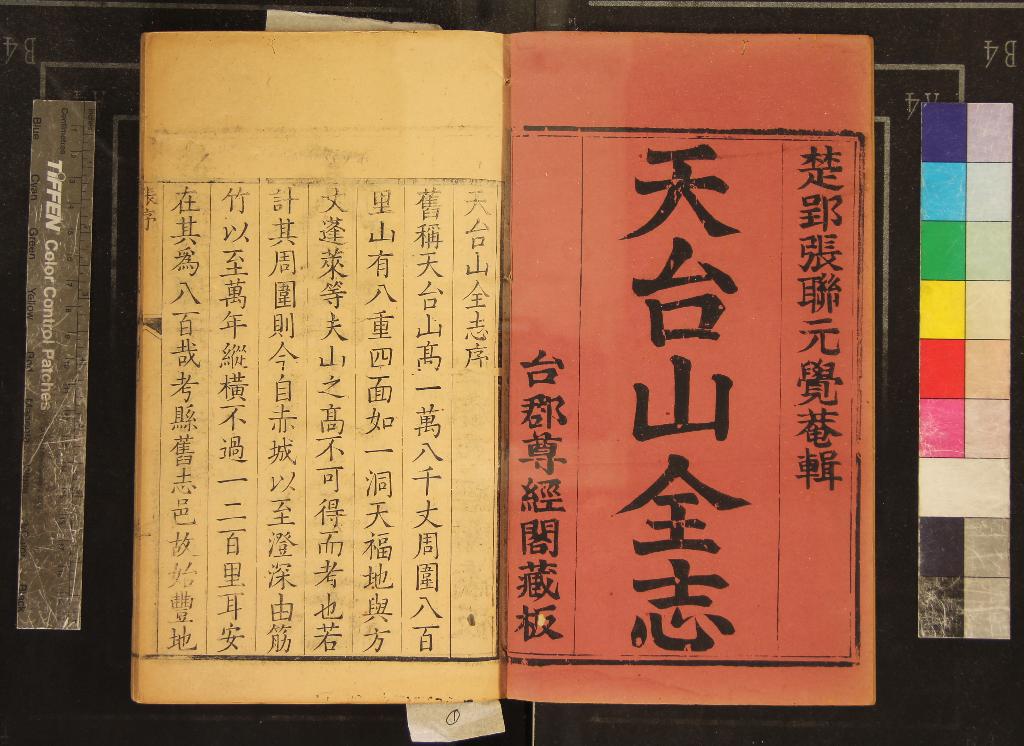 楚郢張聯元覺菴輯
天台山全志
台郡尊經閣藏板
天台山全志序
舊稱天台山高一萬八千丈周圍八百
里山有八重四面如一洞天福地與方
丈蓬萊等夫山之高不可得而考也若
計其周圍則今自赤城以至澄深由筋
竹以至萬年縱橫不過一二百里耳安
在其為八百哉考縣舊志邑故始豐地
張序
TIFFEN Color Control Patches
Blue
Cyan
Green
Yellow
Red
Black
B4
A4
B4
①